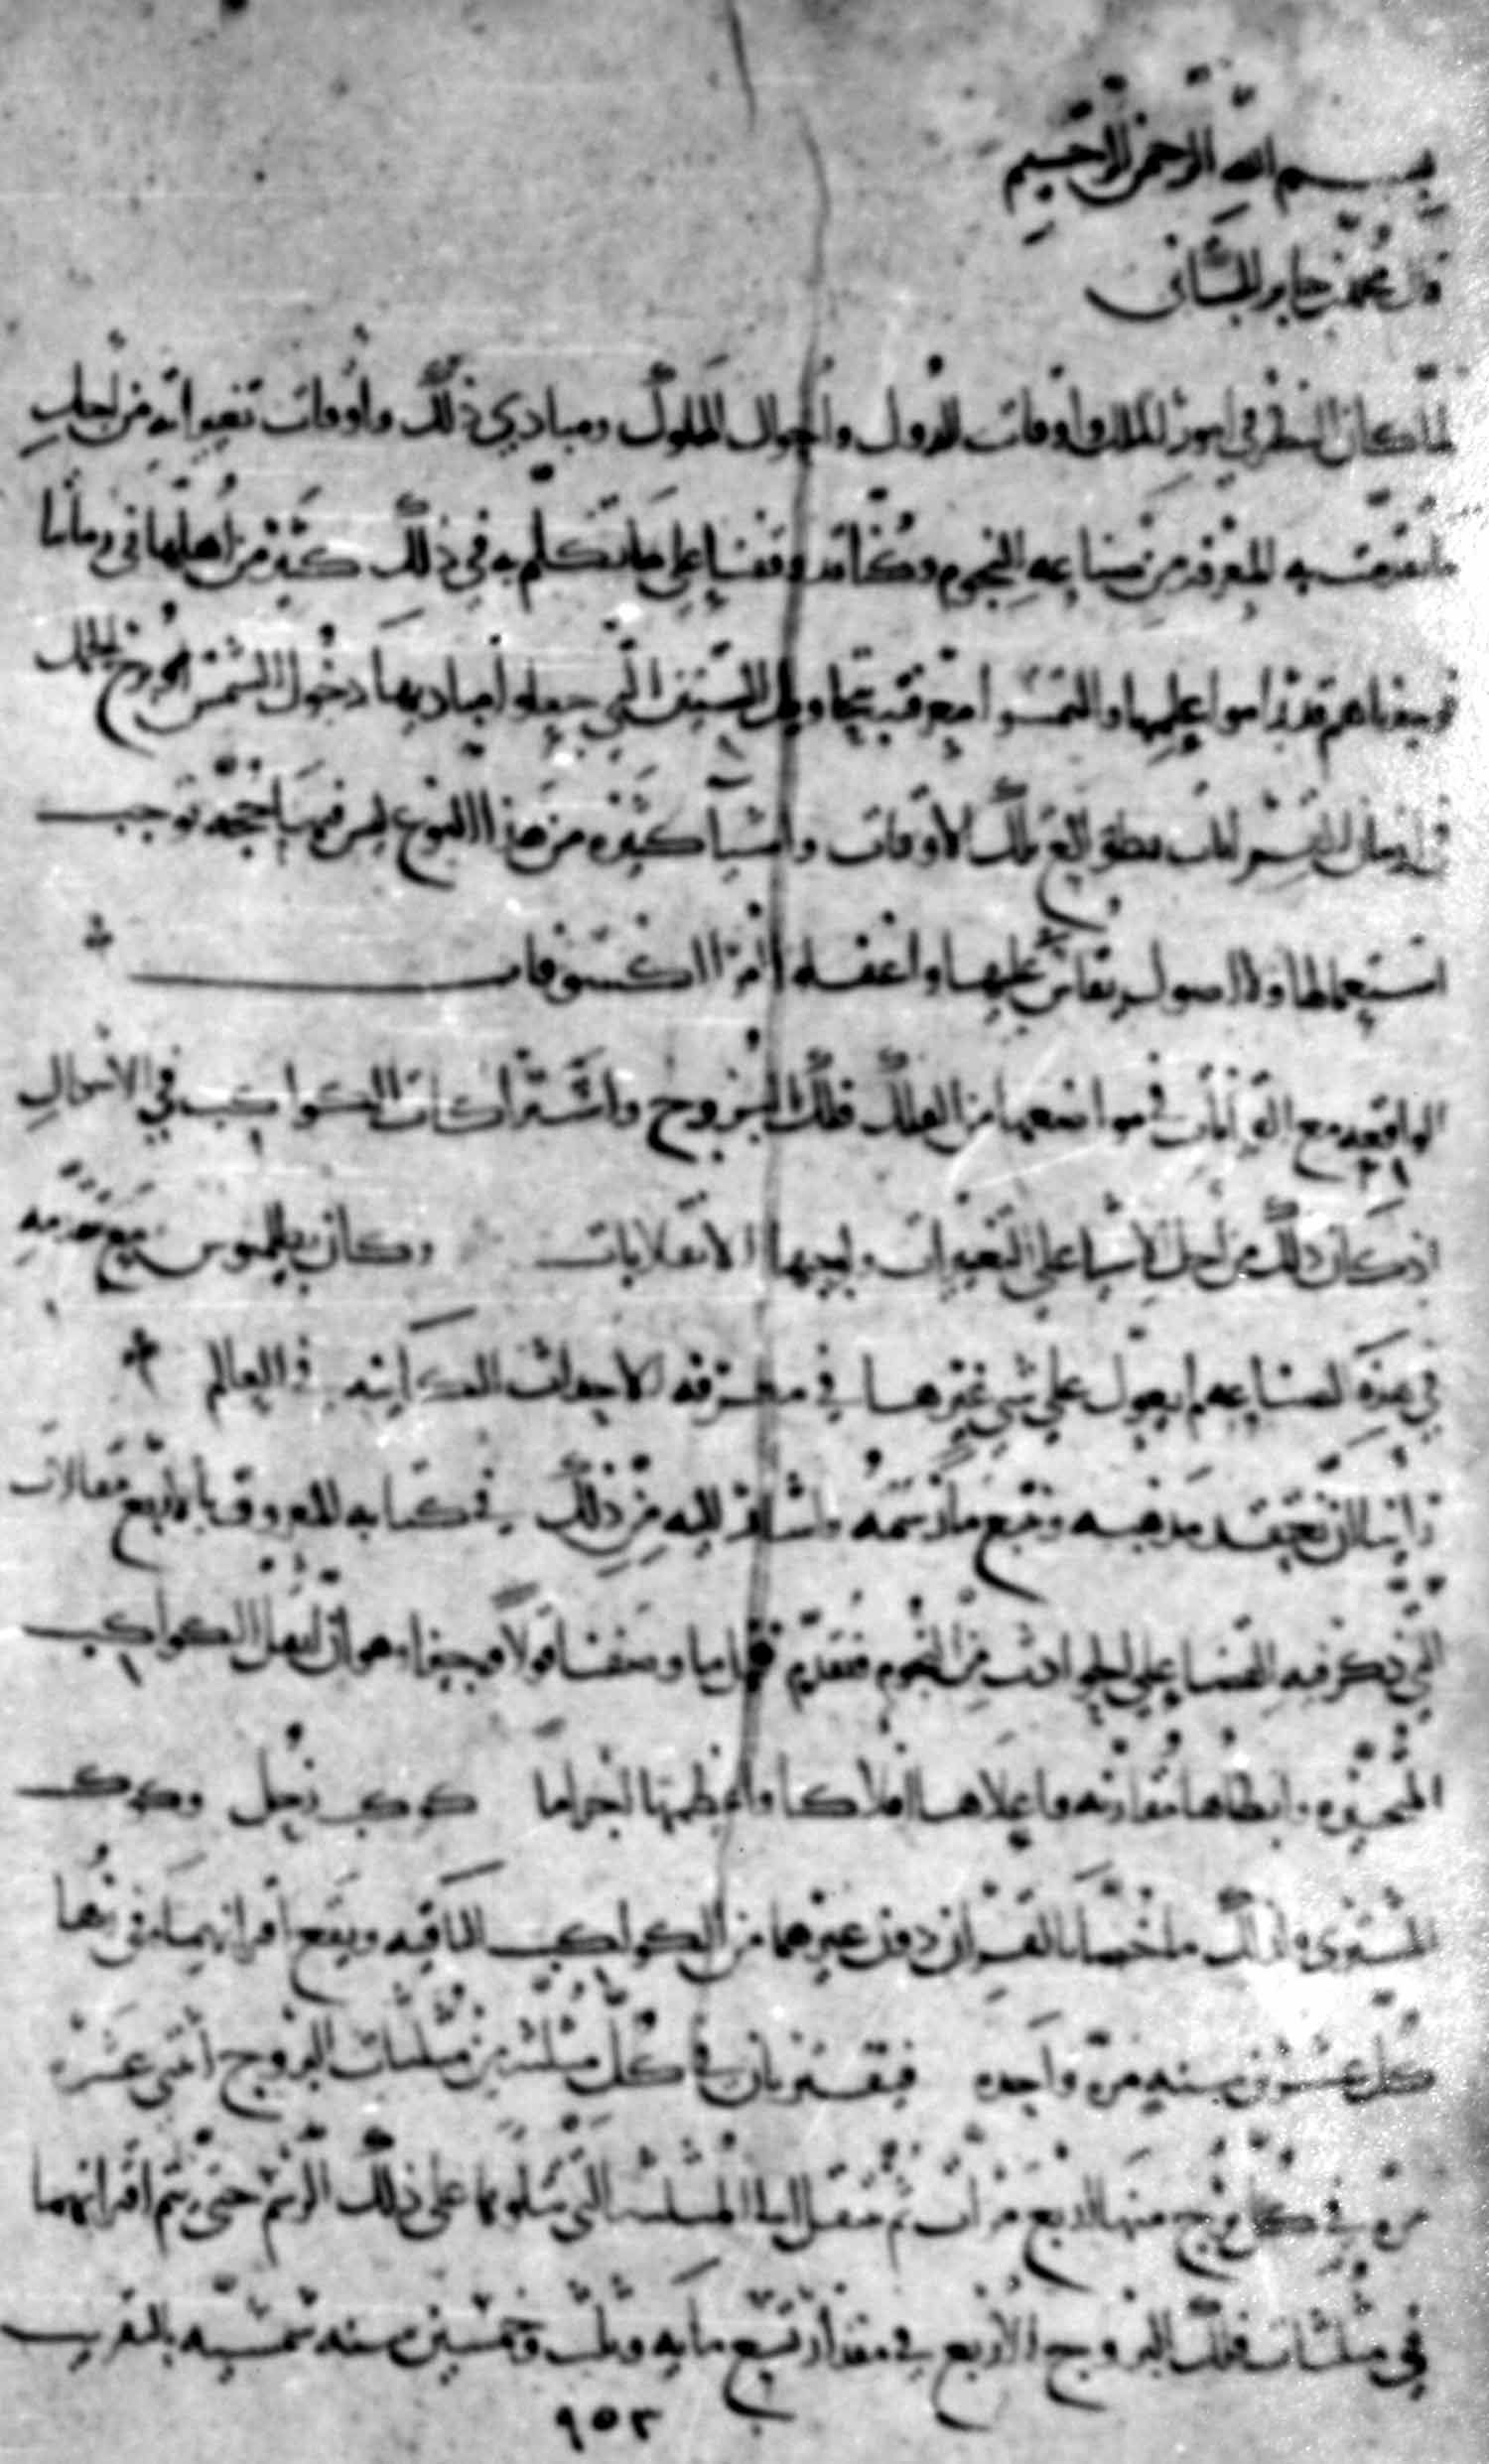 بسم الله الرحمن الرحيم
قال محمد بن جابر البتاني
لما كان النظر في امور الملل واوقات الدول واحوال الملوك ومبادي ذلك واوقات تغيراته من اجل
ما تقدمت به المعرفة من صناعة النجوم وكنا قد وقفنا على ما تكلم به في ذلك كثير من اهلها في زماننا
فوجدناهم قد راموا علمها والتمسوا معرفته بتحاويل السنين التي جعلوا مباديها دخول الشمس برج الحمل
تلك الاوقات واشيا كثيرة من هذا النوع ليس فيها حجة توجب
استعمالها ولا اصول يقاس عليها واغفلوا امر الكسوفات
الواقعة مع القرانات في مواضعها من الفلك فلك البروج واشتراكات الكواكب في الاحوال
اذ كان ذلك من اجل الاشيا على التغيرات الانقلابات وكان بطلميوس مع تقدمه
في هذه الصناعة لم يعول على شي غيرها في معرفة الاحداث الكاينة في العالم
راينا ان نعتقد مذهبه ونتبع ما رسمه واشار اليه من ذلك في كتابه المعروف بالاربع مقالات
التي ذكر فيه القضا على الحوادث من النجوم فنقدم وصفنا قولا وجيزا وهو ان اثقل الكواكب
المتحيرة وابطاها مقارنة واعلاها افلاكا واعظمها اجراما كوكب زحل وكوكب
المشترى ولذلك ما خصا بالقران دون غيرهما من الكواكب الباقية ويقع اقترانهما في نحو
كل عشرين سنة مرة واحدة فيقترنان في كل مثلثة من مثلثات البروج اثنتى عشرة
مرة في كل برج منها اربع مرات ثم تنتقل الى المثلثة التي تتلوها على ذلك الرسم حتى يتم اقترانهما
في مثلثات فلك البروج الاربع في مقدار تسع ماية وثلث وخمسين سنة شمسية بالتقريب
٩٥٣